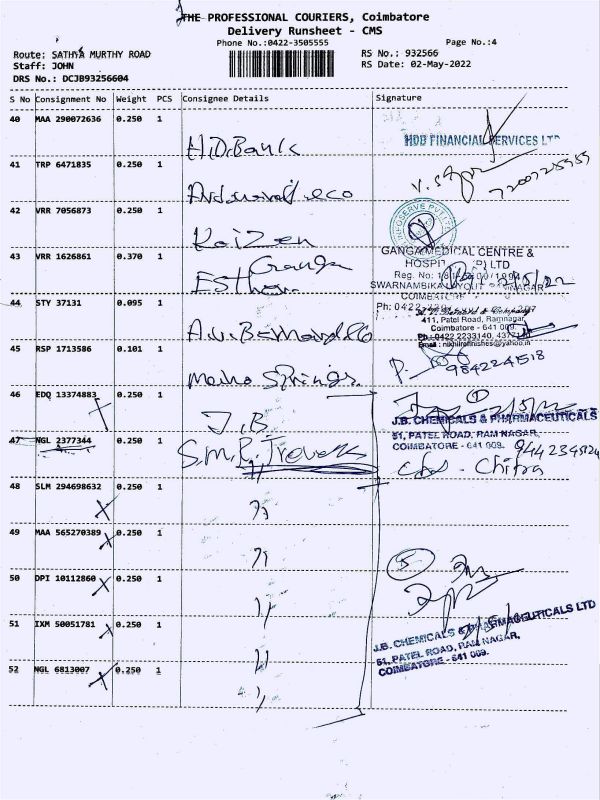 THE PROFESSIONAL COURIERS, Coimbatore
Delivery Runsheet - CMS
Phone No.:0422-3505555
Page No.:4
Route: SATHYA MURTHY ROAD
RS No.: 932566
Staff: JOHN
RS Date: 02-May-2022
DRS No.: DCJB93256604
S No Consignment No Weight PCS Consignee Details Signature
40 MAA 290072636 0.250 1
H.D.Bank
HDB FINANCIAL SERVICES LTD
41 TRP 6471835 0.250 1
42 VRR 7056873 0.250 1
Kaizen
43 VRR 1626861 0.370 1
Ganga
GANGA MEDICAL CENTRE &
HOSPITAL (P) LTD
Reg. No:
SWARNAMBIKA LAYOUT
COIMBATORE
Ph: 0422
44 STY 37131 0.095 1
411, Patel Road, Ramnagar,
Coimbatore - 641 009.
Ph : 0422 2233140,
Email : nikhilrafinishes@yahoo.in
45 RSP 1713586 0.101 1
Springs
984224518
46 EDQ 13374883 0.250 1
J.B
J.B. CHEMICALS & PHARMACEUTICALS
51, PATEL ROAD, RAM NAGAR,
COIMBATORE - 641 009.
47 NGL 2377344 0.250 1
S.M.R. Travels
Chitra
48 SLM 294698632 0.250 1
〃
49 MAA 565270389 0.250 1
〃
5
50 DPI 10112860 0.250 1
〃
51 IXM 50051781 0.250 1
〃
J.B. CHEMICALS & PHARMACEUTICALS LTD
51, PATEL ROAD, RAM NAGAR,
COIMBATORE - 641 009.
52 NGL 6813007 0.250 1
〃